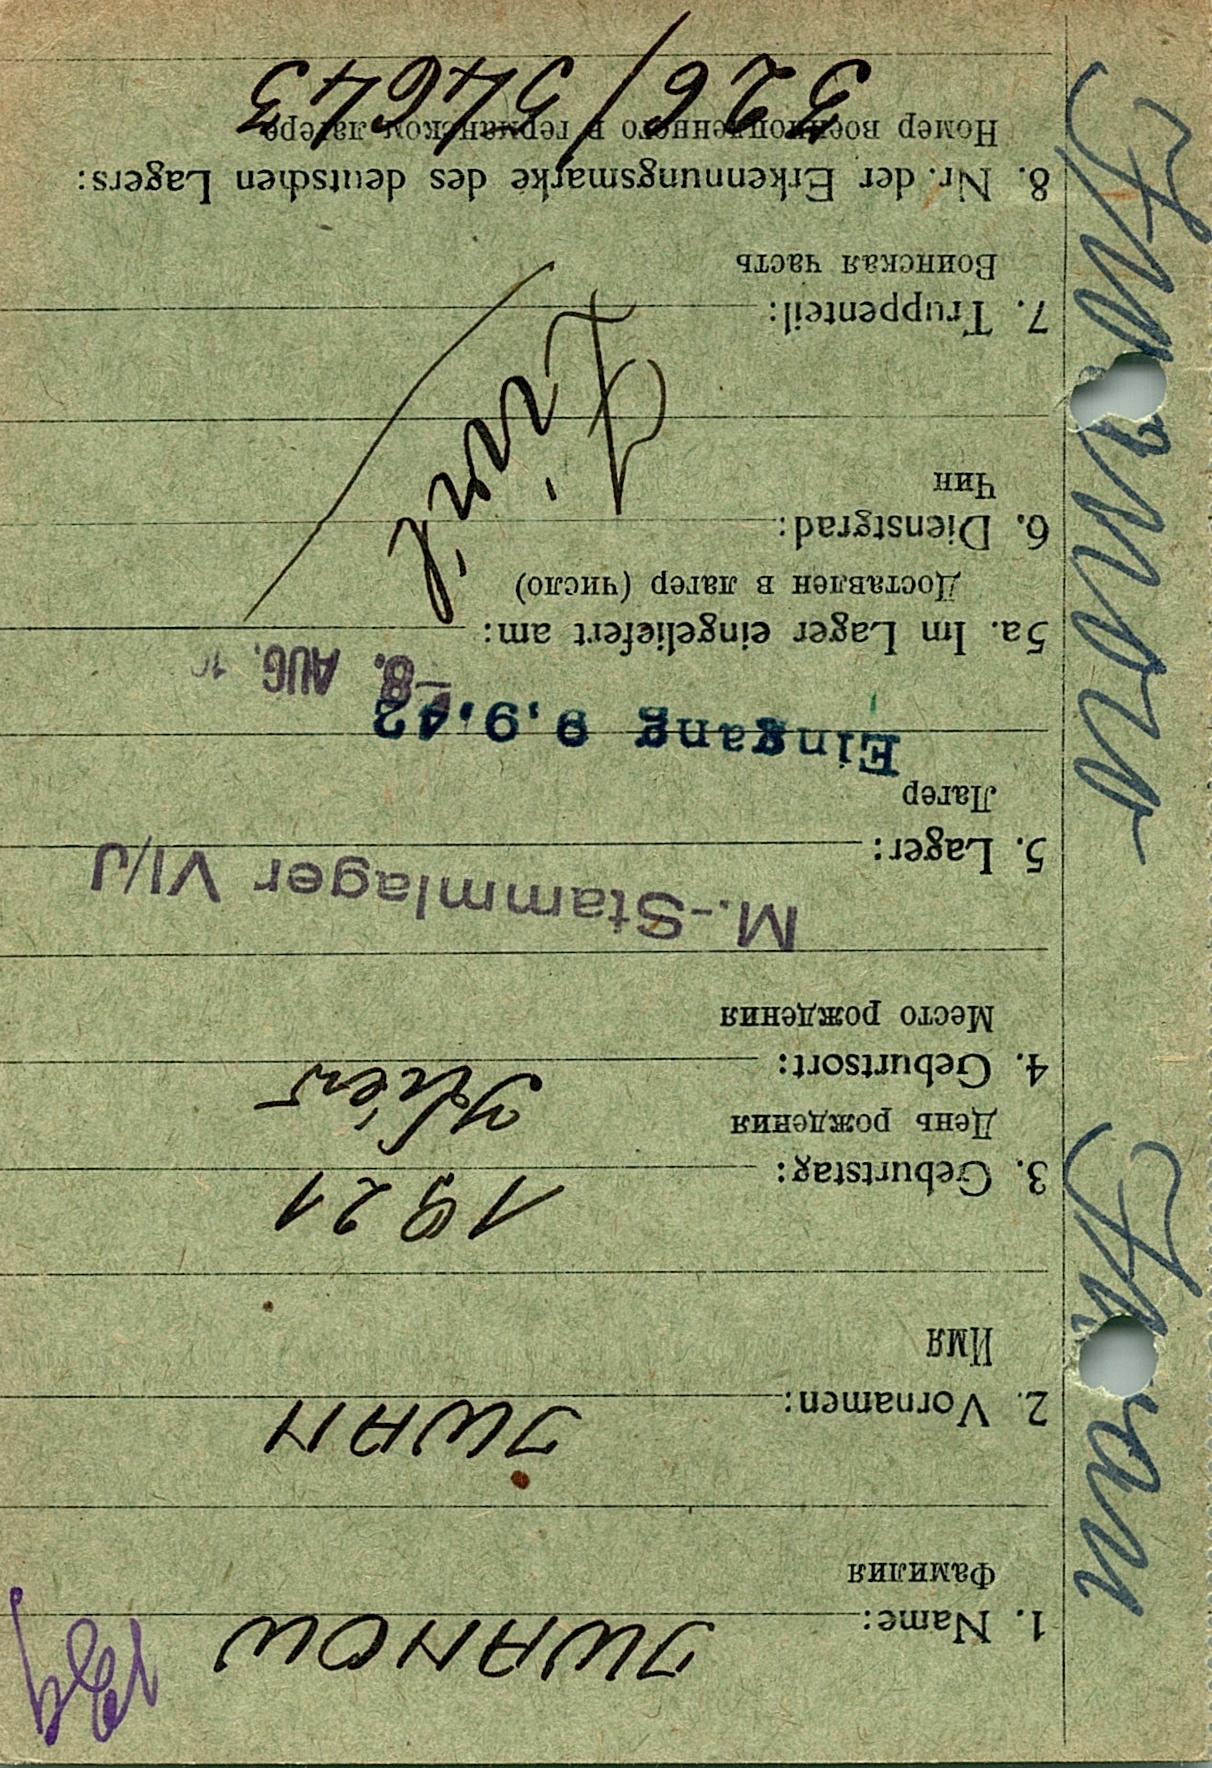 139
1. Name: IWANOW
Фамилия
2. Vornamen: IWAN
Имя
3. Geburtstag: 1921
День рождения
4. Geburtsort: Kiew
Место рождения
M.-Stammlager VI/J
5. Lager:
Лагер
Eingang 9.9.42
-8. AUG.
5a. Im Lager eingeliefert am:
Доставлен в лагер (число)
6. Dienstgrad:
Чин
Zivil
7. Truppenteil:
Воинская часть
8. Nr. der Erkennungsmarke des deutschen Lagers:
Номер военнопленного в германском лагере
326/54643
Iwanow
Iwan